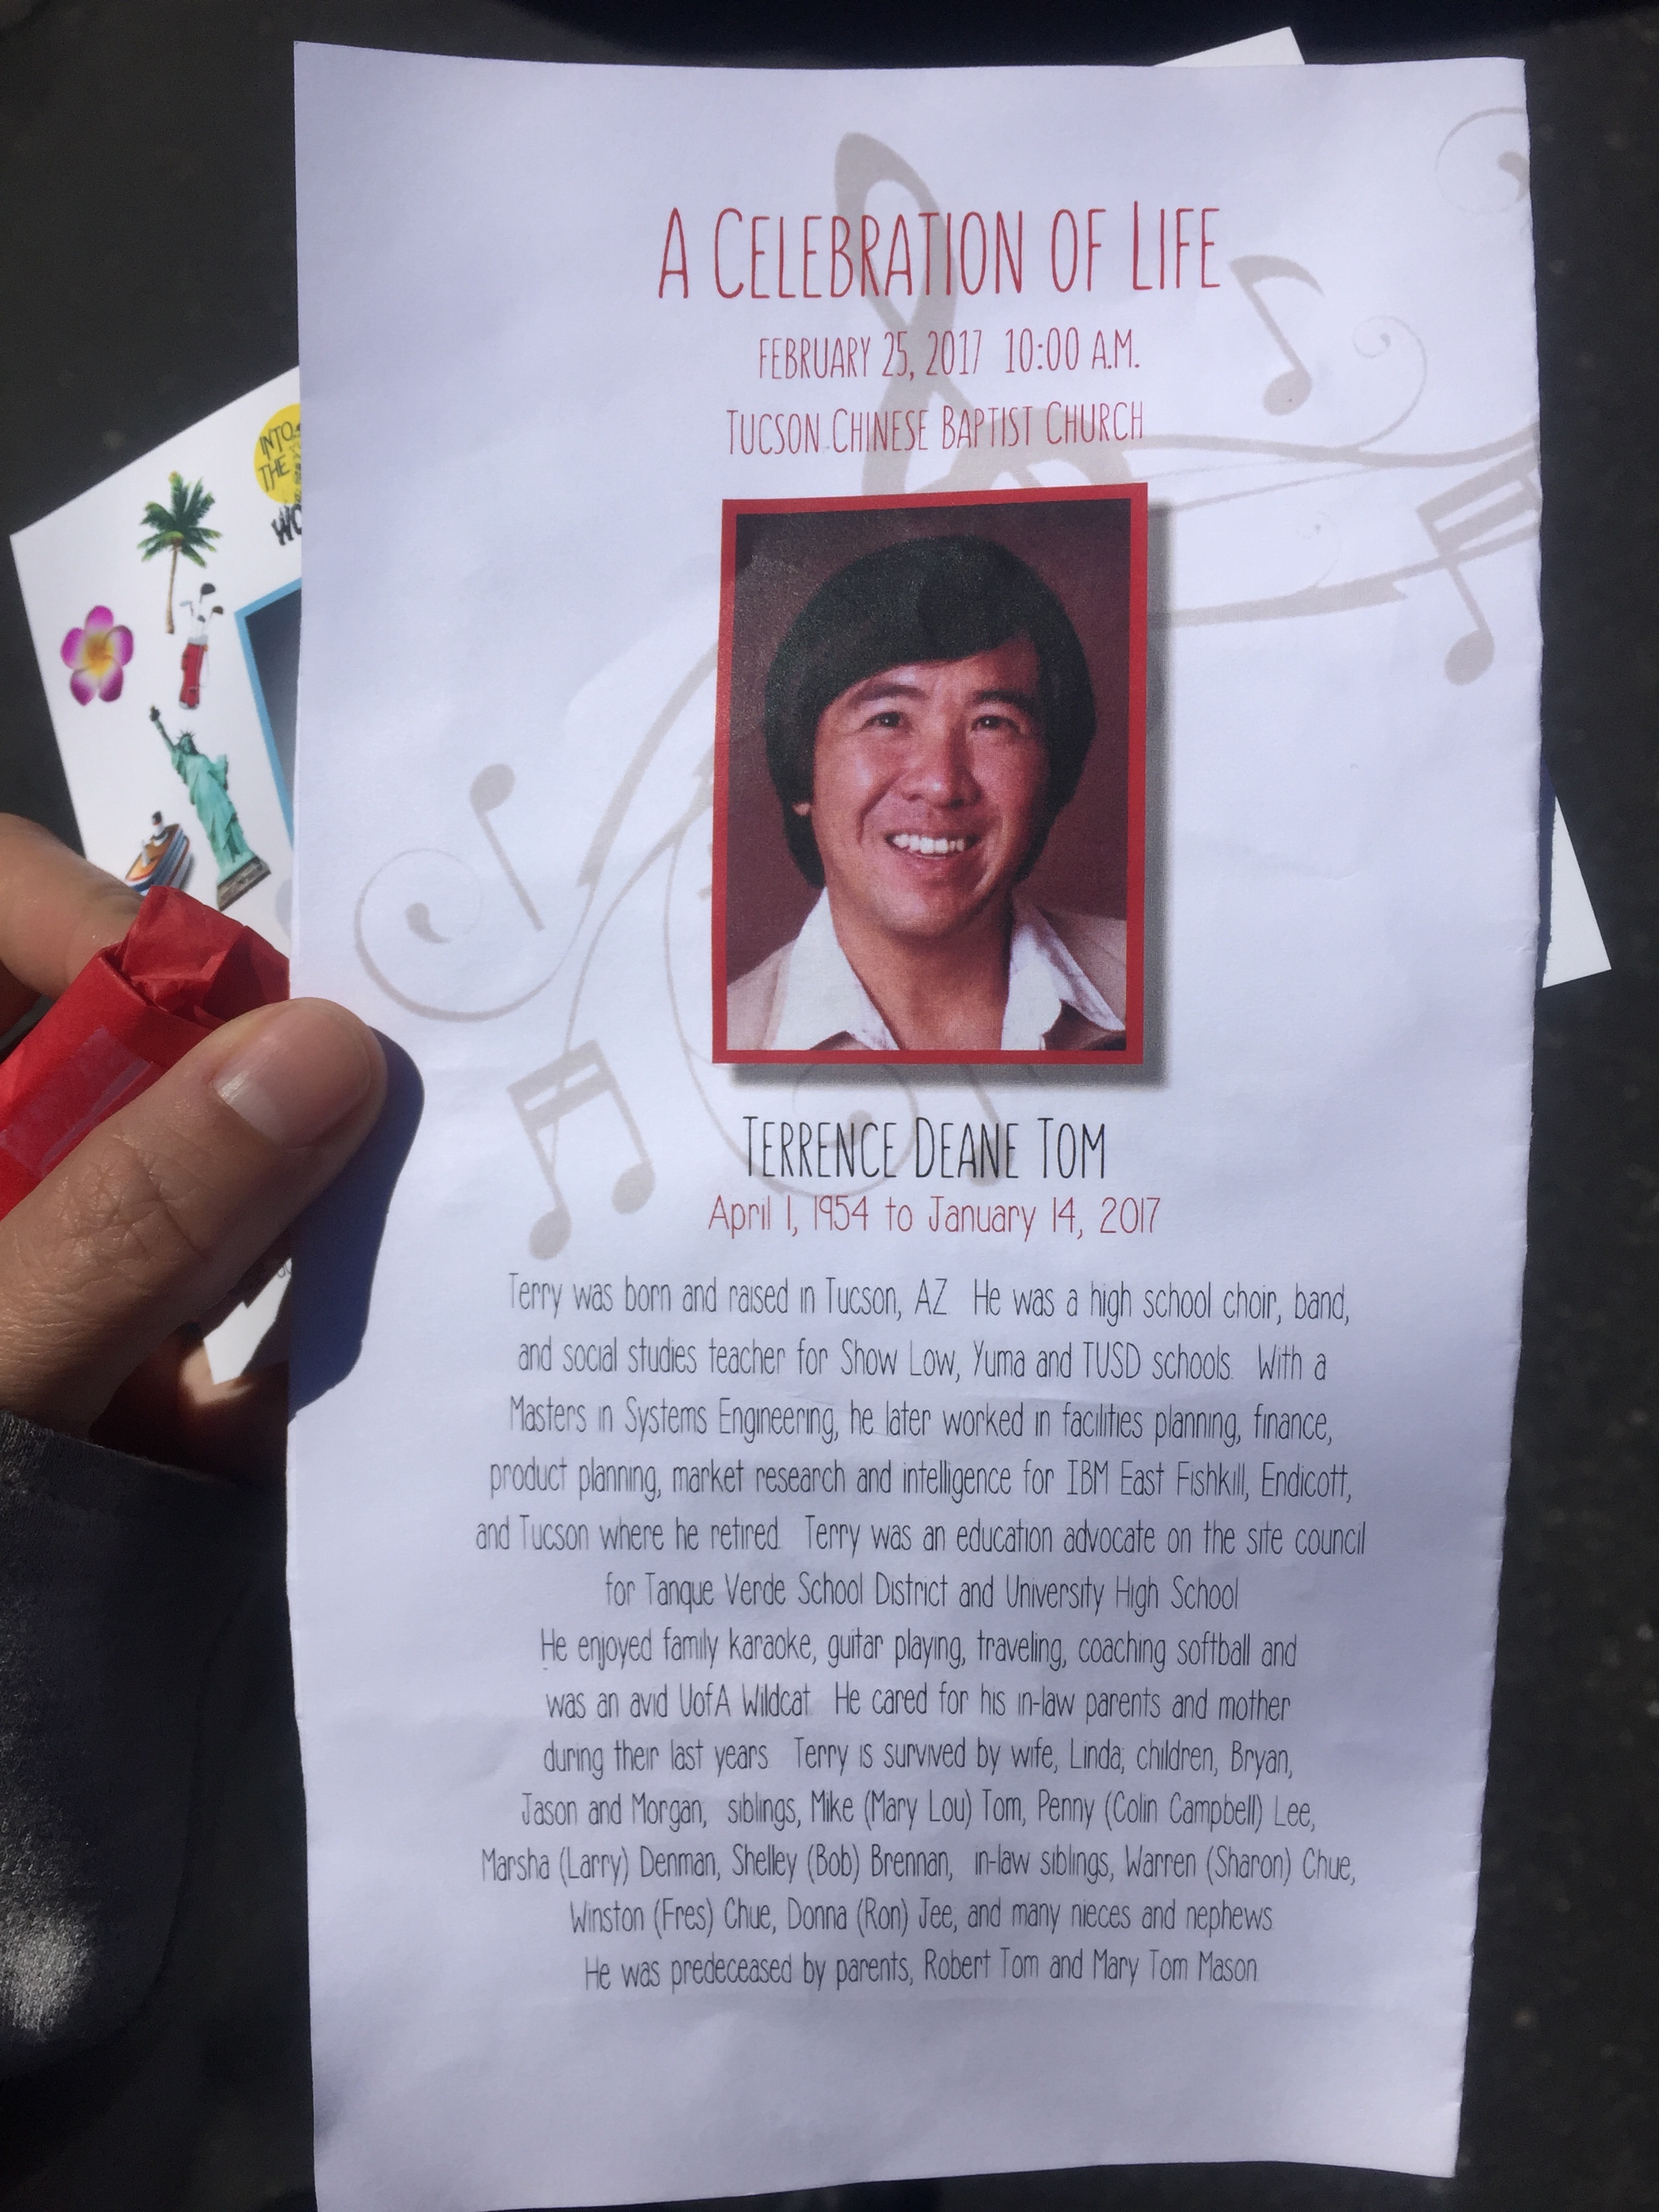 A CELEBRATION OF LIFE
FEBRUARY 25, 2017 10:00 A.M.
TUCSON CHINESE BAPTIST CHURCH
INTO
THE
TERRENCE DEANE TOM
April 1, 1954 to January 14, 2017
Terry was born and raised in Tucson, AZ. He was a high school choir, band,
and social studies teacher for Show Low, Yuma and TUSD schools. With a
Masters in Systems Engineering, he later worked in facilities planning, finance,
product planning, market research and intelligence for IBM East Fishkill, Endicott,
and Tucson where he retired. Terry was an education advocate on the site council
for Tanque Verde School District and University High School.
He enjoyed family karaoke, guitar playing, traveling, coaching softball and
was an avid UofA Wildcat. He cared for his in-law parents and mother
during their last years. Terry is survived by wife, Linda; children, Bryan,
Jason and Morgan; siblings, Mike (Mary Lou) Tom, Penny (Colin Campbell) Lee,
Marsha (Larry) Denman, Shelley (Bob) Brennan; in-law siblings, Warren (Sharon) Chue,
Winston (Fres) Chue, Donna (Ron) Jee, and many nieces and nephews.
He was predeceased by parents, Robert Tom and Mary Tom Mason.